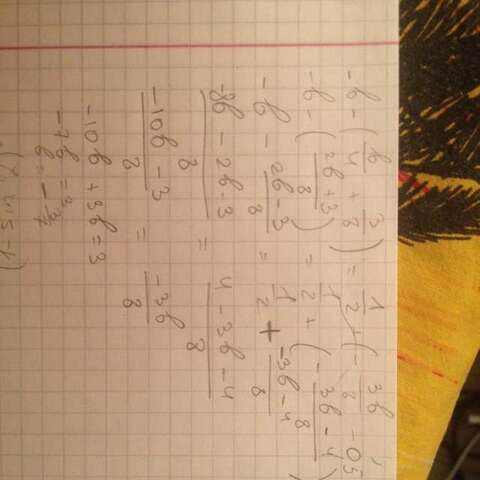 -b - (b/4 + 3/8) = 1/2 + (-3b/8 - 0,5)
-b - (2b+3/8) = 1/2 + (-3b-4/8)
-b - 2b-3/8 = 1/2 + -3b-4/8
-8b-2b-3/8 = 4-3b-4/8
-10b-3/8 = -3b/8
-10b+3b=3
-7b=3
b=-3/7